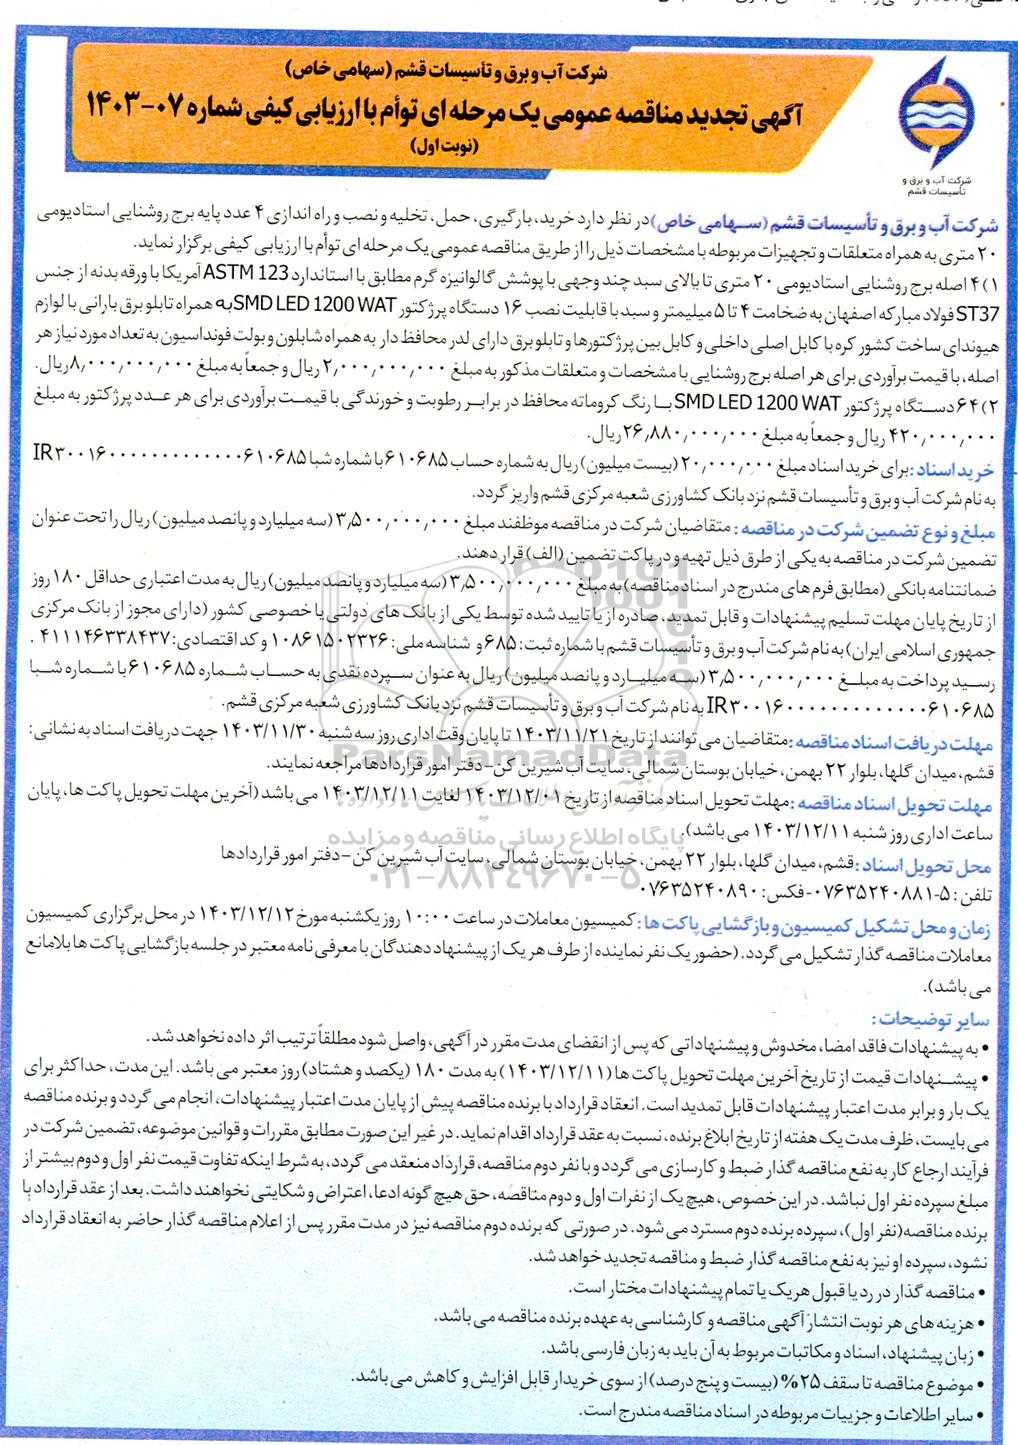 شرکت آب و برق و تأسیسات قشم (سهامی خاص)
آگهی تجدید مناقصه عمومی یک مرحله ای توأم با ارزیابی کیفی شماره ۰۷-۱۴۰۳
(نوبت اول)
شرکت آب و برق و
تأسیسات قشم
شرکت آب و برق و تأسیسات قشم (سهامی خاص) در نظر دارد خرید، بارگیری، حمل، تخلیه و نصب و راه اندازی ۴ عدد پایه برج روشنایی استادیومی
۲۰ متری به همراه متعلقات و تجهیزات مربوطه با مشخصات ذیل را از طریق مناقصه عمومی یک مرحله ای توأم با ارزیابی کیفی برگزار نماید.
۱) ۴ اصله برج روشنایی استادیومی ۲۰ متری تا بالای سبد چند وجهی با پوشش گالوانیزه گرم مطابق با استاندارد ASTM 123 آمریکا با ورقه بدنه از جنس
ST37 فولاد مبارکه اصفهان به ضخامت ۴ تا ۵ میلیمتر و سبد با قابلیت نصب ۱۶ دستگاه پرژکتور SMD LED 1200 WAT به همراه تابلو برق بارانی با لوازم
هیوندای ساخت کشور کره با کابل اصلی داخلی و کابل بین پرژکتورها و تابلو برق دارای لدر محافظ دار به همراه شابلون و بولت فونداسیون به تعداد مورد نیاز هر
اصله، با قیمت برآوردی برای هر اصله برج روشنایی با مشخصات و متعلقات مذکور به مبلغ ۲٫۰۰۰٫۰۰۰٫۰۰۰ ریال و جمعاً به مبلغ ۸٫۰۰۰٫۰۰۰٫۰۰۰ ریال.
۲) ۶۴ دستگاه پرژکتور SMD LED 1200 WAT با رنگ کروماته محافظ در برابر رطوبت و خورندگی با قیمت برآوردی برای هر عدد پرژکتور به مبلغ
۴۲۰٫۰۰۰٫۰۰۰ ریال و جمعاً به مبلغ ۲۶٫۸۸۰٫۰۰۰٫۰۰۰ ریال.
خرید اسناد: برای خرید اسناد مبلغ ۲۰٫۰۰۰٫۰۰۰ (بیست میلیون) ریال به شماره حساب ۶۱۰۶۸۵ با شماره شبا IR ۳۰۰۱۶۰۰۰۰۰۰۰۰۰۰۰۰۰۰۶۱۰۶۸۵
به نام شرکت آب و برق و تأسیسات قشم نزد بانک کشاورزی شعبه مرکزی قشم واریز گردد.
مبلغ و نوع تضمین شرکت در مناقصه: متقاضیان شرکت در مناقصه موظفند مبلغ ۳٫۵۰۰٫۰۰۰٫۰۰۰ (سه میلیارد و پانصد میلیون) ریال را تحت عنوان
تضمین شرکت در مناقصه به یکی از طرق ذیل تهیه و در پاکت تضمین (الف) قرار دهند.
ضمانتنامه بانکی (مطابق فرم های مندرج در اسناد مناقصه) به مبلغ ۳٫۵۰۰٫۰۰۰٫۰۰۰ (سه میلیارد و پانصد میلیون) ریال به مدت اعتباری حداقل ۱۸۰ روز
از تاریخ پایان مهلت تسلیم پیشنهادات و قابل تمدید، صادره از یا تایید شده توسط یکی از بانک های دولتی یا خصوصی کشور (دارای مجوز از بانک مرکزی
جمهوری اسلامی ایران) به نام شرکت آب و برق و تأسیسات قشم با شماره ثبت: ۶۸۵ و شناسه ملی: ۱۰۸۶۱۵۰۲۳۲۶ و کد اقتصادی: ۴۱۱۱۴۶۳۳۸۴۳۷ .
رسید پرداخت به مبلغ ۳٫۵۰۰٫۰۰۰٫۰۰۰ (سه میلیارد و پانصد میلیون) ریال به عنوان سپرده نقدی به حساب شماره ۶۱۰۶۸۵ با شماره شبا
IR ۳۰۰۱۶۰۰۰۰۰۰۰۰۰۰۰۰۰۰۶۱۰۶۸۵ به نام شرکت آب و برق و تأسیسات قشم نزد بانک کشاورزی شعبه مرکزی قشم.
مهلت دریافت اسناد مناقصه: متقاضیان می توانند از تاریخ ۱۴۰۳/۱۱/۲۱ تا پایان وقت اداری روز سه شنبه ۱۴۰۳/۱۱/۳۰ جهت دریافت اسناد به نشانی:
قشم، میدان گلها، بلوار ۲۲ بهمن، خیابان بوستان شمالی، سایت آب شیرین کن- دفتر امور قراردادها مراجعه نمایند.
مهلت تحویل اسناد مناقصه: مهلت تحویل اسناد مناقصه از تاریخ ۱۴۰۳/۱۲/۰۱ لغایت ۱۴۰۳/۱۲/۱۱ می باشد (آخرین مهلت تحویل پاکت ها، پایان
ساعت اداری روز شنبه ۱۴۰۳/۱۲/۱۱ می باشد).
محل تحویل اسناد: قشم، میدان گلها، بلوار ۲۲ بهمن، خیابان بوستان شمالی، سایت آب شیرین کن- دفتر امور قراردادها
تلفن: ۵-۰۷۶۳۵۲۴۰۸۸۱ - فکس: ۰۷۶۳۵۲۴۰۸۹۰
زمان و محل تشکیل کمیسیون و بازگشایی پاکت ها: کمیسیون معاملات در ساعت ۱۰:۰۰ روز یکشنبه مورخ ۱۴۰۳/۱۲/۱۲ در محل برگزاری کمیسیون
معاملات مناقصه گذار تشکیل می گردد. (حضور یک نفر نماینده از طرف هر یک از پیشنهاد دهندگان با معرفی نامه معتبر در جلسه بازگشایی پاکت ها بلامانع
می باشد).
سایر توضیحات:
• به پیشنهادات فاقد امضا، مخدوش و پیشنهاداتی که پس از انقضای مدت مقرر در آگهی، واصل شود مطلقاً ترتیب اثر داده نخواهد شد.
• پیشنهادات قیمت از تاریخ آخرین مهلت تحویل پاکت ها (۱۴۰۳/۱۲/۱۱) به مدت ۱۸۰ (یکصد و هشتاد) روز معتبر می باشد. این مدت، حداکثر برای
یک بار و برابر مدت اعتبار پیشنهادات قابل تمدید است. انعقاد قرارداد با برنده مناقصه پیش از پایان مدت اعتبار پیشنهادات، انجام می گردد و برنده مناقصه
می بایست، ظرف مدت یک هفته از تاریخ ابلاغ برنده، نسبت به عقد قرارداد اقدام نماید. در غیر این صورت مطابق مقررات و قوانین موضوعه، تضمین شرکت در
فرآیند ارجاع کار به نفع مناقصه گذار ضبط و کارسازی می گردد و با نفر دوم مناقصه، قرارداد منعقد می گردد، به شرط اینکه تفاوت قیمت نفر اول و دوم بیشتر از
مبلغ سپرده نفر اول نباشد. در این خصوص، هیچ یک از نفرات اول و دوم مناقصه، حق هیچ گونه ادعا، اعتراض و شکایتی نخواهند داشت. بعد از عقد قرارداد با
برنده مناقصه (نفر اول)، سپرده برنده دوم مسترد می شود. در صورتی که برنده دوم مناقصه نیز در مدت مقرر پس از اعلام مناقصه گذار حاضر به انعقاد قرارداد
نشود، سپرده او نیز به نفع مناقصه گذار ضبط و مناقصه تجدید خواهد شد.
• مناقصه گذار در رد یا قبول هریک یا تمام پیشنهادات مختار است.
• هزینه های هر نوبت انتشار آگهی مناقصه و کارشناسی به عهده برنده مناقصه می باشد.
• زبان پیشنهاد، اسناد و مکاتبات مربوط به آن باید به زبان فارسی باشد.
• موضوع مناقصه تا سقف ۲۵% (بیست و پنج درصد) از سوی خریدار قابل افزایش و کاهش می باشد.
• سایر اطلاعات و جزییات مربوطه در اسناد مناقصه مندرج است.
ParsNamadData
پایگاه اطلاع رسانی مناقصه و مزایده
۰۲۱-۸۸۳۴۹۶۷۰-۵